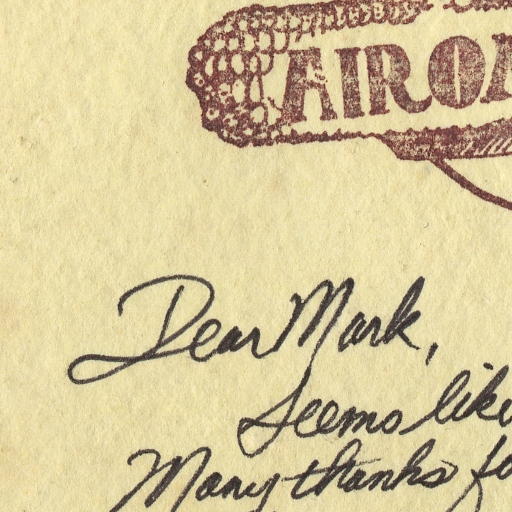 AIRO
Dear Mark,
Seems like
Many thanks fo